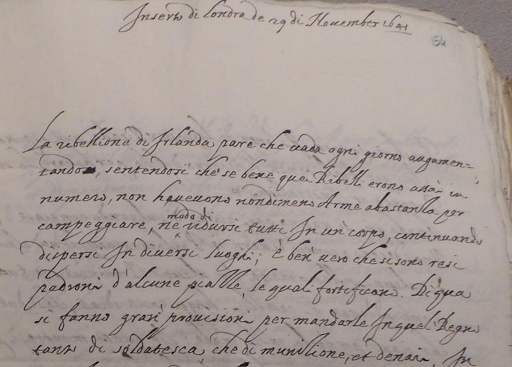 Inserto di Londra de 29 di Novembre 1641
54
La rebellione di Irlanda pare che vada ogni giorno augumen-
tando, sentendosi che se bene quei Ribelli erono assai in
numero, non havevono nondimeno Arme abastanza per
campeggiare, ne modo di ridursi tutti In un corpo, continuando
dispersi In diversi luoghi; è ben vero che si sono resi
padroni d'alcune piazze, le quali fortificono. Di qua
si fanno gravi provisioni per mandarle In quel Regno
tanto di soldatesca, che di munitione, et denari. In